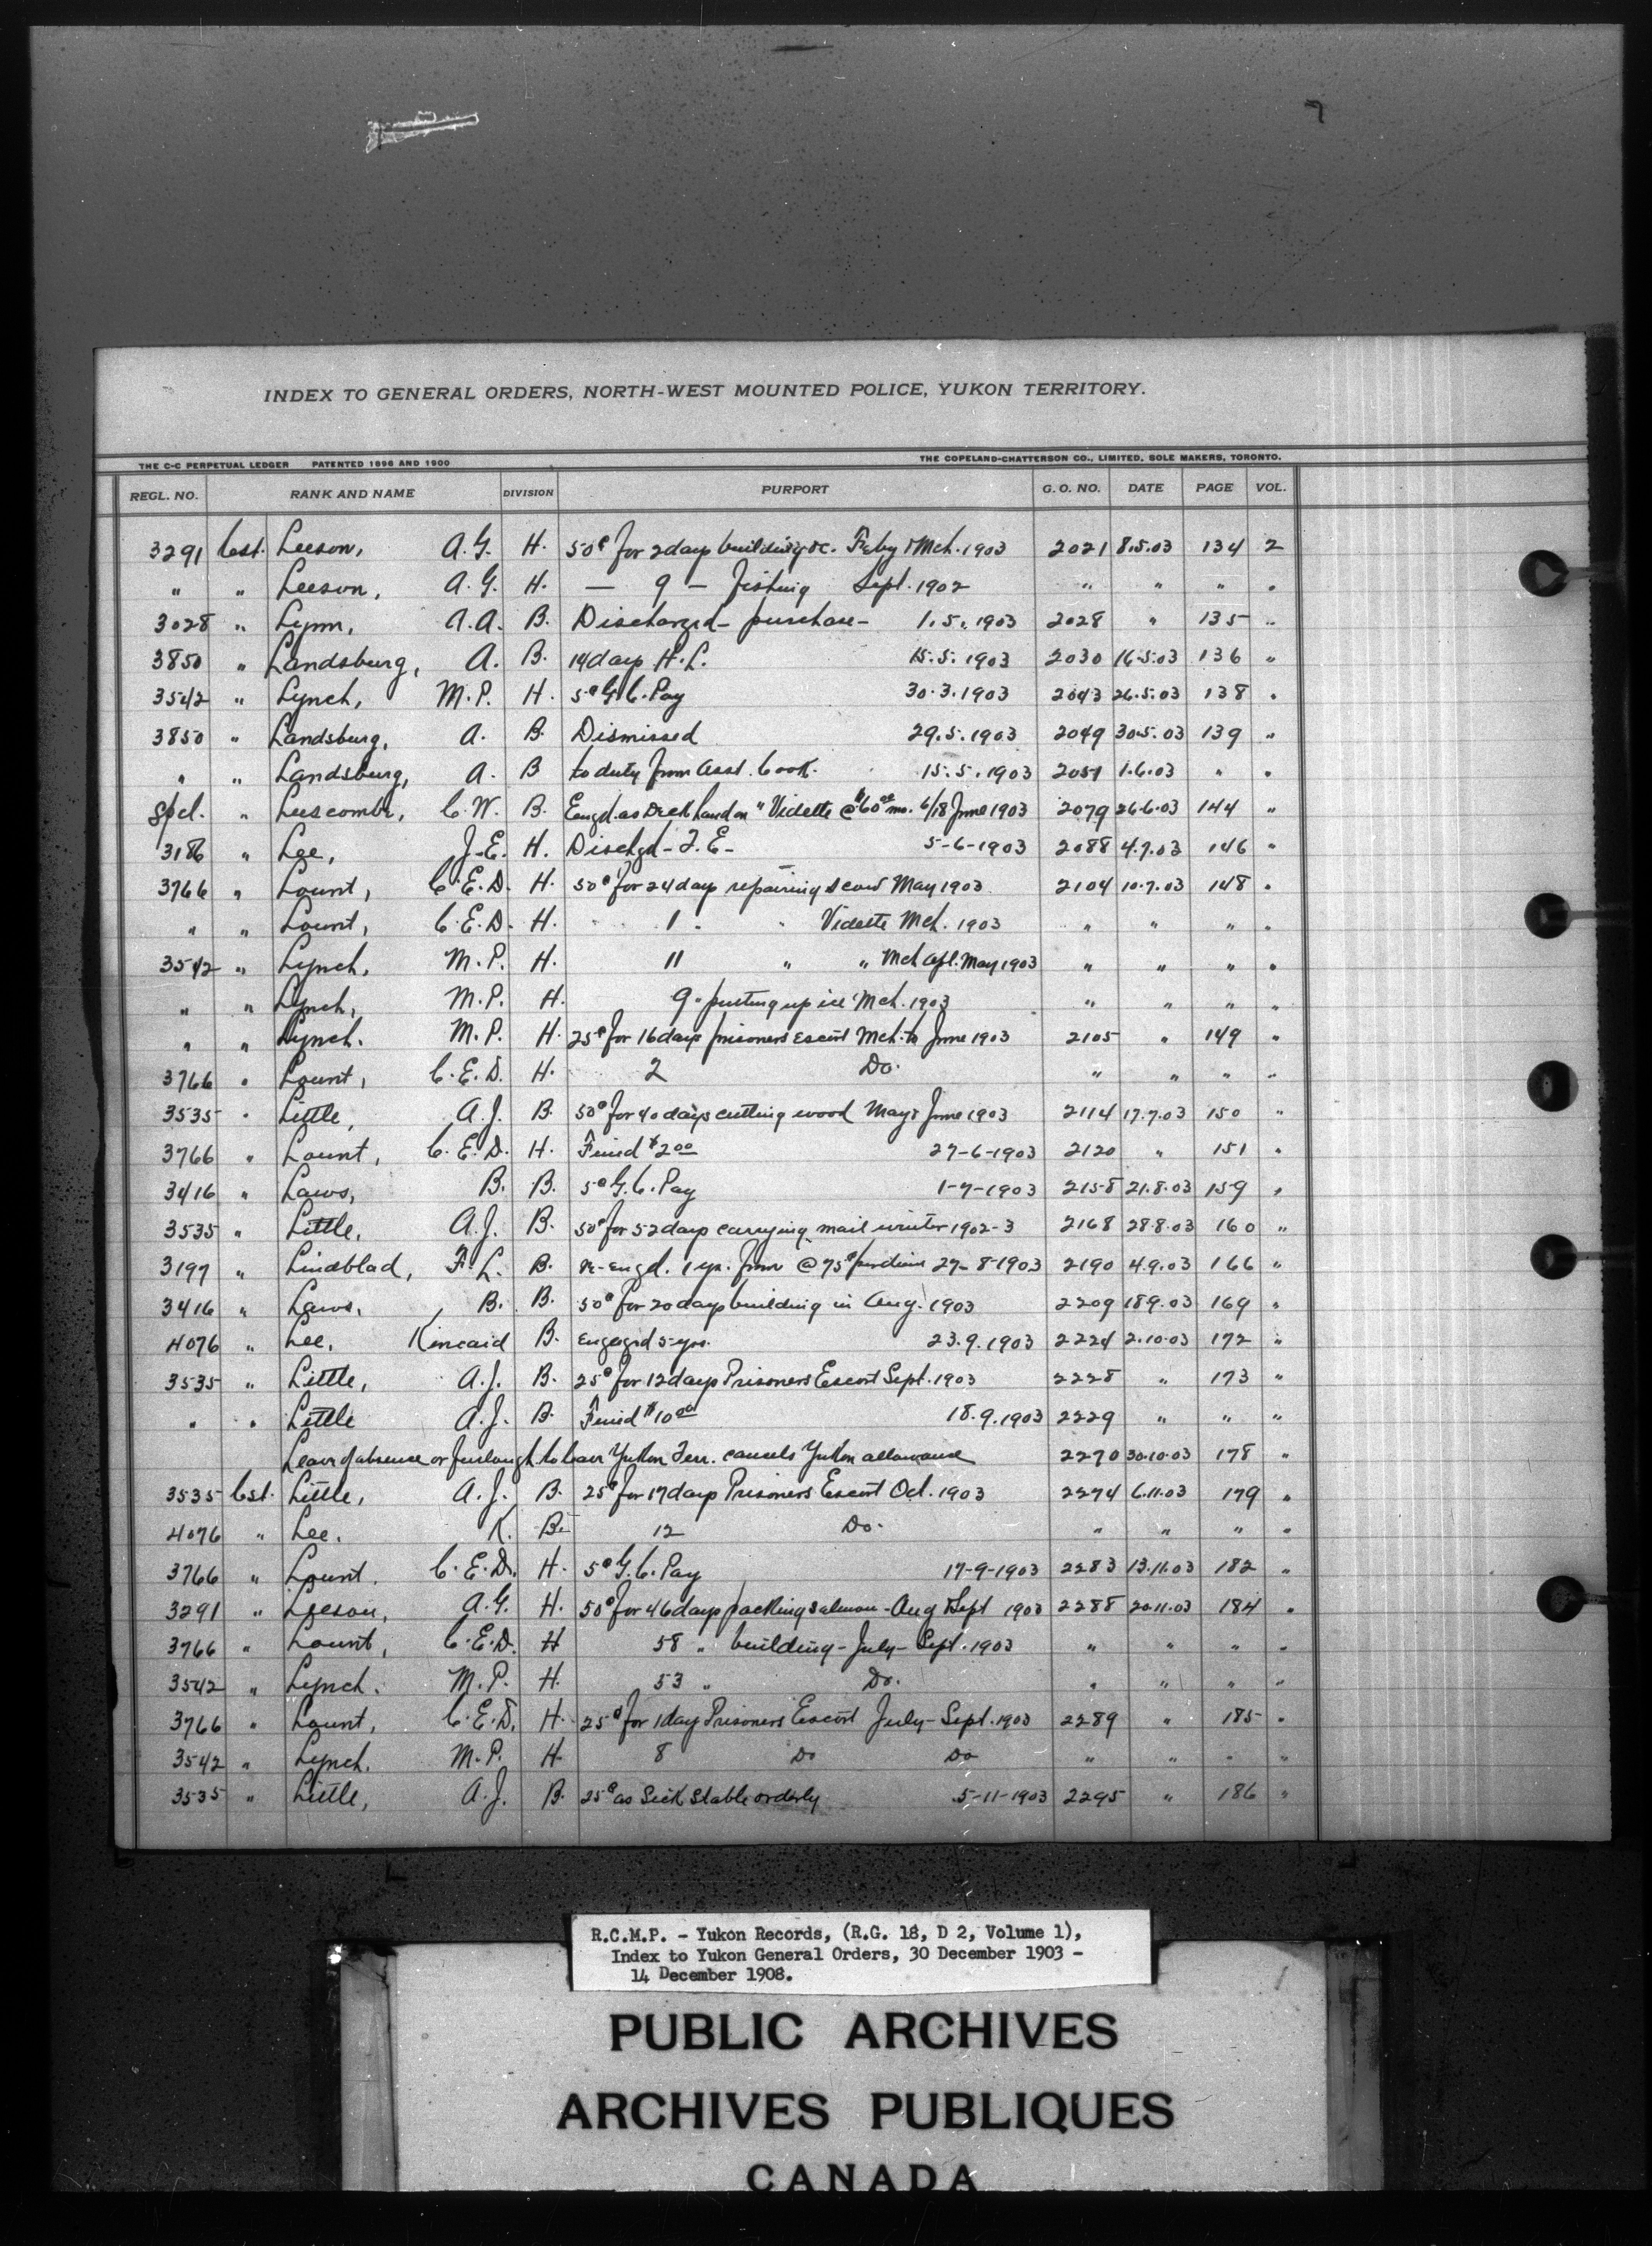 7
INDEX TO GENERAL ORDERS, NORTH-WEST MOUNTED POLICE, YUKON TERRITORY.
THE C-C PERPETUAL LEDGER PATENTED 1896 AND 1900 THE COPELAND-CHATTERSON CO., LIMITED, SOLE MAKERS, TORONTO.
REGL. NO. RANK AND NAME DIVISION PURPORT G. O. NO. DATE PAGE VOL.
3291 Cst. Leeson, A. G. H. 50¢ for 2 days building &c. Feby & Mch. 1903 2021 8.5.03 134 2
" " Leeson, A. G. H. — 9 — fishing Sept. 1902 " " " "
3028 " Lynn, A. A. B. Discharged - purchase - 1. 5. 1903 2028 " 135 "
3850 " Landsburg, A. B. 14 days H. L. 15. 5. 1903 2030 16.5.03 136 "
3542 " Lynch, M. P. H. 5¢ G. C. Pay 30. 3. 1903 2043 26.5.03 138 "
3850 " Landsburg, A. B. Dismissed 29. 5. 1903 2049 30.5.03 139 "
" " Landsburg, A. B to duty from asst. Cook. 15. 5. 1903 2051 1.6.03 " "
Spcl. " Luscombe, C. W. B. Engd. as Deck hand on "Vidette @ $60.00 mo. 6/18 June 1903 2079 26.6.03 144 "
3186 " Lee, J. E. H. Dischgd - T. E. - 5-6-1903 2088 4.7.03 146 "
3766 " Lount, C. E. D. H. 50¢ for 24 days repairing scow May 1903 2104 10.7.03 148 "
" " Lount, C. E. D. H. 1 " " Vidette Mch. 1903 " " " "
3542 " Lynch, M. P. H. 11 " " Mch Apl. May 1903 " " " "
" " Lynch, M. P. H. 9 " putting up ice Mch. 1903 " " " "
" " Lynch. M. P. H. 25¢ for 16 days prisoners escort Mch. to June 1903 2105 " 149 "
3766 " Lount, C. E. D. H. 2 Do. " " " "
3535 " Little, A. J. B. 50¢ for 40 days cutting wood May & June 1903 2114 17.7.03 150 "
3766 " Lount, C. E. D. H. Fined $2.00 27-6-1903 2120 " 151 "
3416 " Laws, B. B. 5¢ G. C. Pay 1-7-1903 2158 21.8.03 159 "
3535 " Little, A. J. B. 50¢ for 52 days carrying mail winter 1902-3 2168 28.8.03 160 "
3197 " Lindblad, F. L. B. re-engd. 1 yr. from @ 75¢ per diem 27-8-1903 2190 4.9.03 166 "
3416 " Laws, B. B. 50¢ for 20 days building in Aug. 1903 2209 18.9.03 169 "
4076 " Lee, Kincaid B. Engaged 5 yrs. 23. 9. 1903 2224 2.10.03 172 "
3535 " Little, A. J. B. 25¢ for 12 days Prisoners Escort Sept. 1903 2228 " 173 "
" " Little A. J. B. Fined $10.00 18. 9. 1903 2229 " " "
Leave of absence or furlough to leave Yukon Terr. cancels Yukon allowance 2270 30.10.03 178 "
3535 Cst. Little, A. J. B. 25¢ for 17 days Prisoners Escort Oct. 1903 2274 6.11.03 179 "
4076 " Lee. K. B. 12 Do. " " " "
3766 " Lount. C. E. D. H. 5¢ G. C. Pay 17-9-1903 2283 13.11.03 182 "
3291 " Leeson, A. G. H. 50¢ for 46 days packing salmon - Aug & Sept 1903 2288 20.11.03 184 "
3766 " Lount, C. E. D. H 58 " building - July - Sept. 1903 " " " "
3542 " Lynch. M. P. H. 53 " Do. " " " "
3766 " Lount, C. E. D. H. 25¢ for 1 day Prisoners Escort July - Sept. 1903 2289 " 185 "
3542 " Lynch. M. P. H. 8 Do Do " " " "
3535 " Little, A. J. B. 25¢ as Sick Stable orderly 5-11-1903 2295 " 186 "
R.C.M.P. - Yukon Records, (R.G. 18, D 2, Volume 1),
Index to Yukon General Orders, 30 December 1903 -
14 December 1908.
PUBLIC ARCHIVES
ARCHIVES PUBLIQUES
CANADA